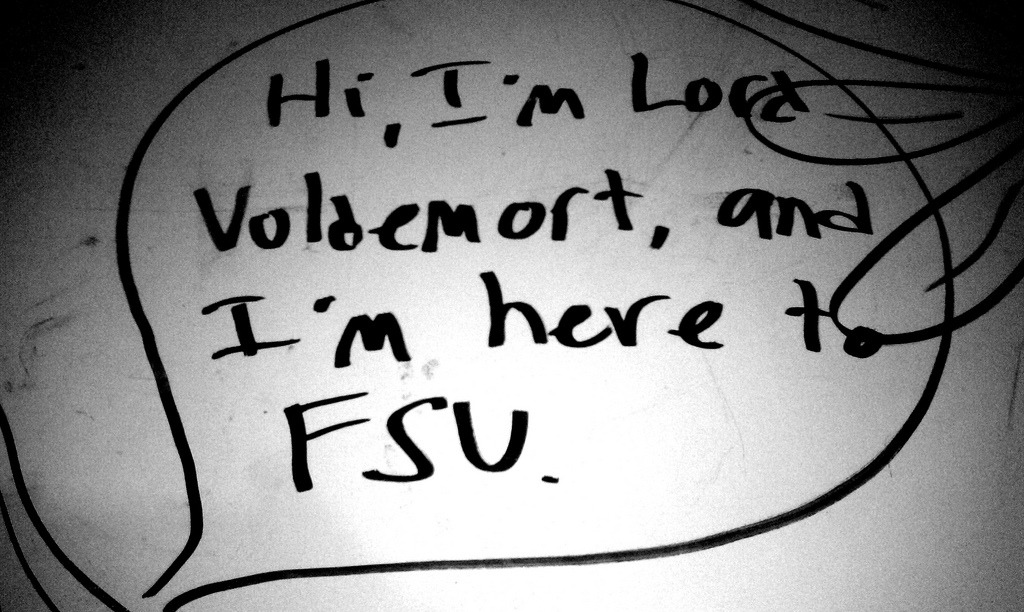 Hi, I'm Lord
Voldemort, and
I'm here to
FSU.